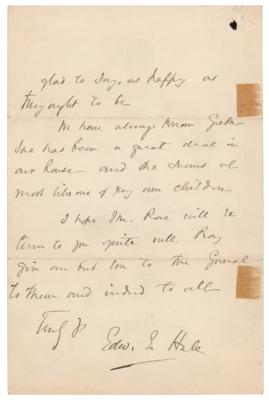 glad to say, as happy as
they ought to be
We have always known Greta
She has been a great deal in
our house and she seems al
most like one of my own children
I hope Mr. Rae will re
turn to you quite well. Pray
give our best love to the General
to them and indeed to all
Truly yrs
Edw. E. Hale